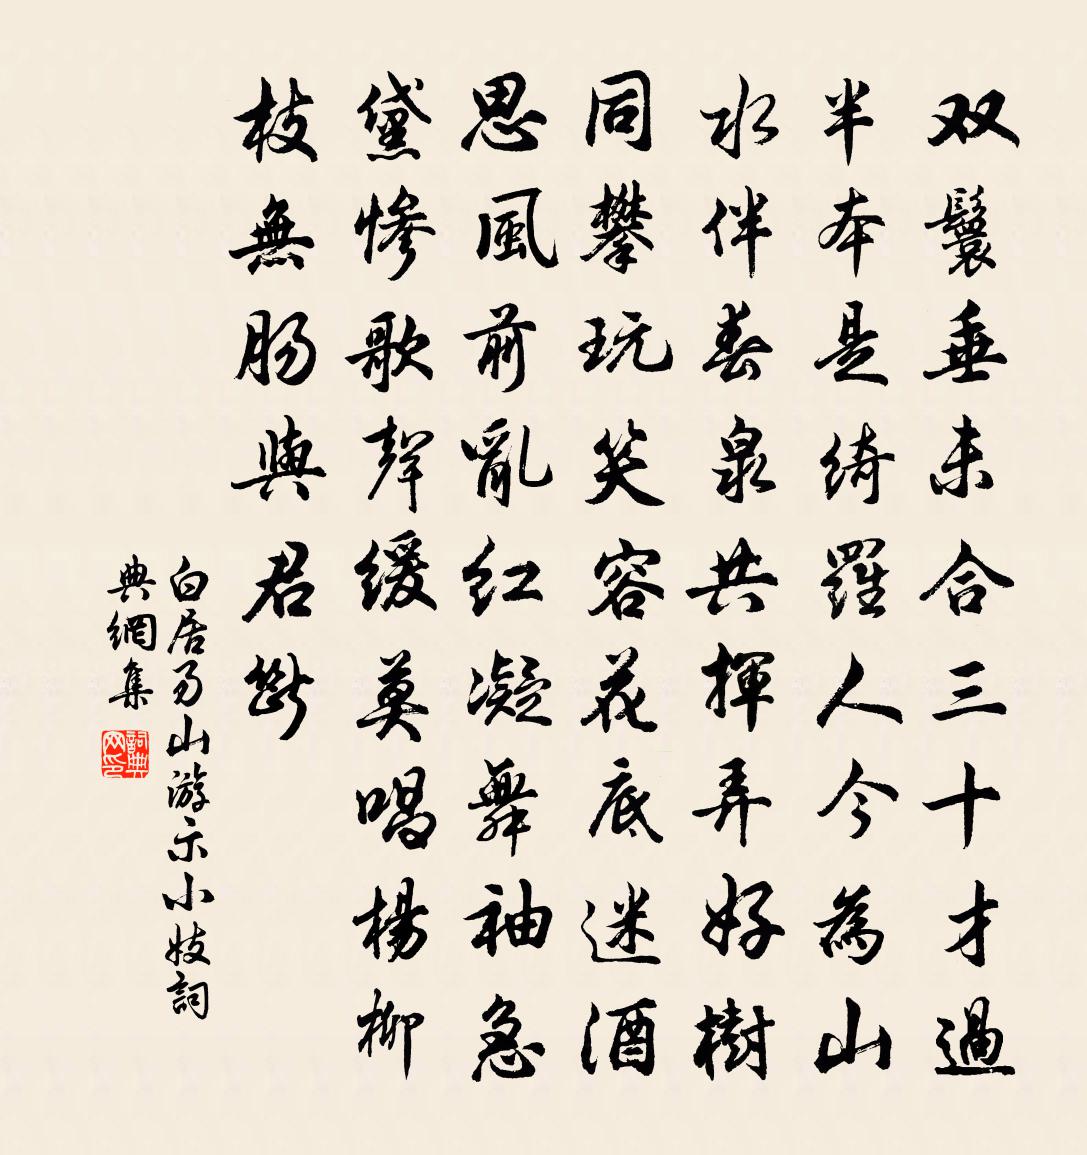 双鬟垂未合三十才過
半本是綺羅人今為山
水伴春泉共揮弄好樹
同攀玩笑容花底迷酒
思風前亂红凝舞袖急
黛慘歌聲缓莫唱楊柳
枝無肠與君斷
白居易山游示小妓詞
典網集
詞典网印